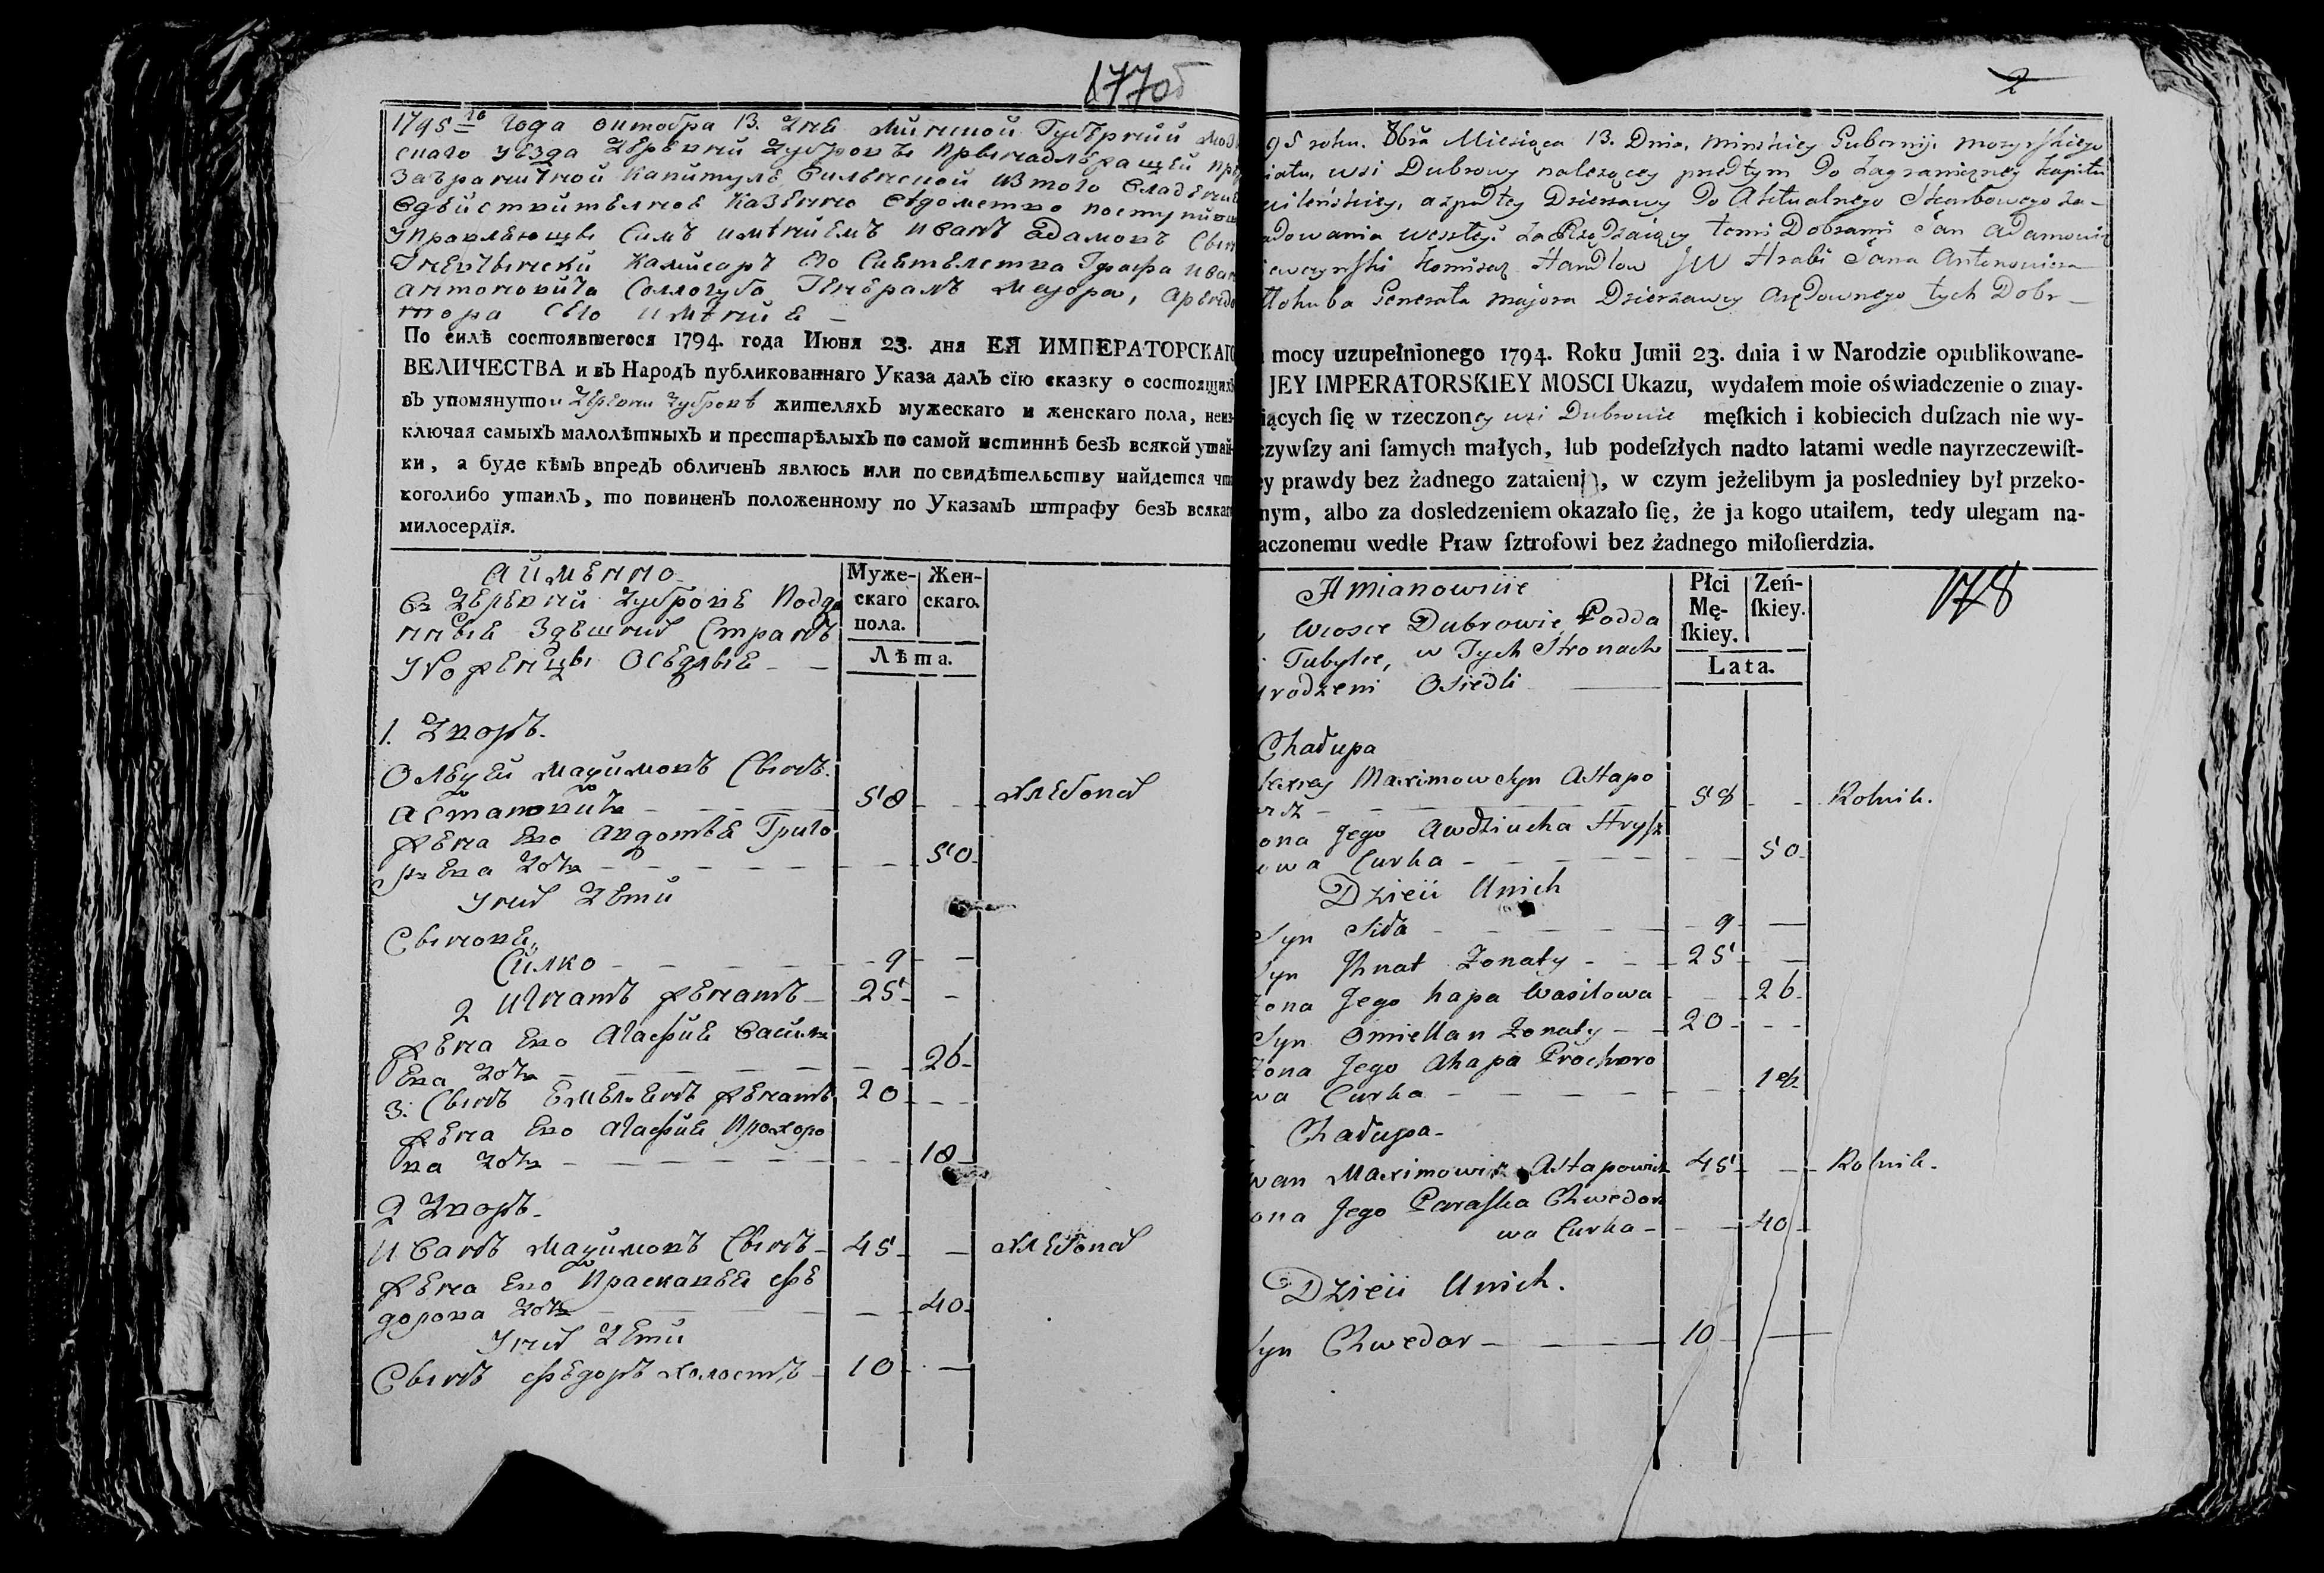 177об
1795 го года октобра 13. дня Минской Губернии
скаго уезда деревни Дубровы
заграничной Капитуле Виленской из того
Казенно ведомство
управляющы сим имѣнием Иван Адамов Сын
Камисар его Сиятелства Графа
Антоновича Соллогуба Генерал Маіора,
сего имѣния
По силѣ состоявшегося 1794. года Июня 23. дня ЕЯ ИМПЕРАТОРСКАГО
ВЕЛИЧЕСТВА и въ НародЪ публикованнаго Указа далЪ сїю сказку о состоящихЪ
въ упомянутои деревни Дубровѣ жителяхЪ мужескаго и женскаго пола, неиз-
ключая самыхЪ малолѣтныхЪ и престарѣлыхЪ по самой истиннѣ безЪ всякой утай-
ки, а буде кѣмЪ впредЪ обличенЪ явлюсь или по свидѣтельству найдется что
коголибо утаилЪ, то повиненЪ положенному по УказамЪ штрафу безЪ всякаго
милосердїя.
А имѣнно
Въ деревни Дуброве Подда
нные здешних Странъ
уроженцы оседлые
Муже-
скаго
пола.
Жен-
скаго.
Лѣта.
1. Дворъ.
Олексей Максимовъ Сынъ
Астаповичъ 58 Хлебопа
жена ево Авдотья Григо
рьева дочь 50
У них дети
Сыновья
Силко 9
2 Игнатъ женатъ 25
жена ево Агафия Васильe
ва дочь 26
3. Сынъ Емельянъ женатъ 20
жена ево Агафия Прохоро
ва дочь 18
2 Дворъ
Иванъ Максимовъ Сынъ 45 Хлебопа
жена ево Прасковья Фе
дорова дочь 40
У них дети
Сынъ Федоръ холостъ 10
2
95 roku. 8bra Miesiąca 13. Dnia, Minskiey Gubernij. Mozyrskiego
iatu, wsi Dubrowy należącey przedtym do Zagraniczney Kapitu
wileńskiey, a z podtey Dzierzawy do Aktualnego Skarbowego Za-
adowania weszłey. Zarządzaiący temi Dobrami Jan Adamowicz
Komisarz Handlow JW Hrabi Jana Antonowicza
łłohuba Generała Majora Dzierzawcy Arędownego tych Dobr
mocy uzupełnionego 1794. Roku Junii 23. dnia i w Narodzie opublikowane-
JEY IMPERATORSKIEY MOSCI Ukazu, wydałem moie oświadczenie o znay-
iących ſię w rzeczoney wsi Dubrowie męſkich i kobiecich duſzach nie wy-
czywſzy ani ſamych małych, łub podeſzłych nadto latami wedle nayrzeczewiſt-
ey prawdy bez żadnego zataieni, w czym jeżelibym ja posledniey był przeko-
nym, albo za dosledzeniem okazało ſię, że ja kogo utaiłem, tedy ulegam na-
aczonemu wedle Praw ſztrofowi bez żadnego miłoſierdzia.
A mianowicie
Wiosce Dubrowie Podda
Tubylce, w Tych Stronach
urodzeni Osiedli
Płci
Mę-
ſkiey.
Zeń-
ſkiey.
Lata.
178
Chałupa
lexey Maximow Syn Astapo
wicz 58 Rolnik.
ona Jego Awdziucha Hrysz
owa Curka 50
Dzieci Unich
Syn Siła 9
Syn Ihnat Zonaty 25
Zona Jego hapa Wasilowa 26
Syn Omiellan Zonaty 20
Zona Jego Ahapa Prochoro
wa Curka 18
Chałupa
Iwan Maximowicz Astapowicz 45 Rolnik.
ona Jego Paraska Chwedoro
wa Curka 40
Dzieci Unich.
Syn Chwedor 10